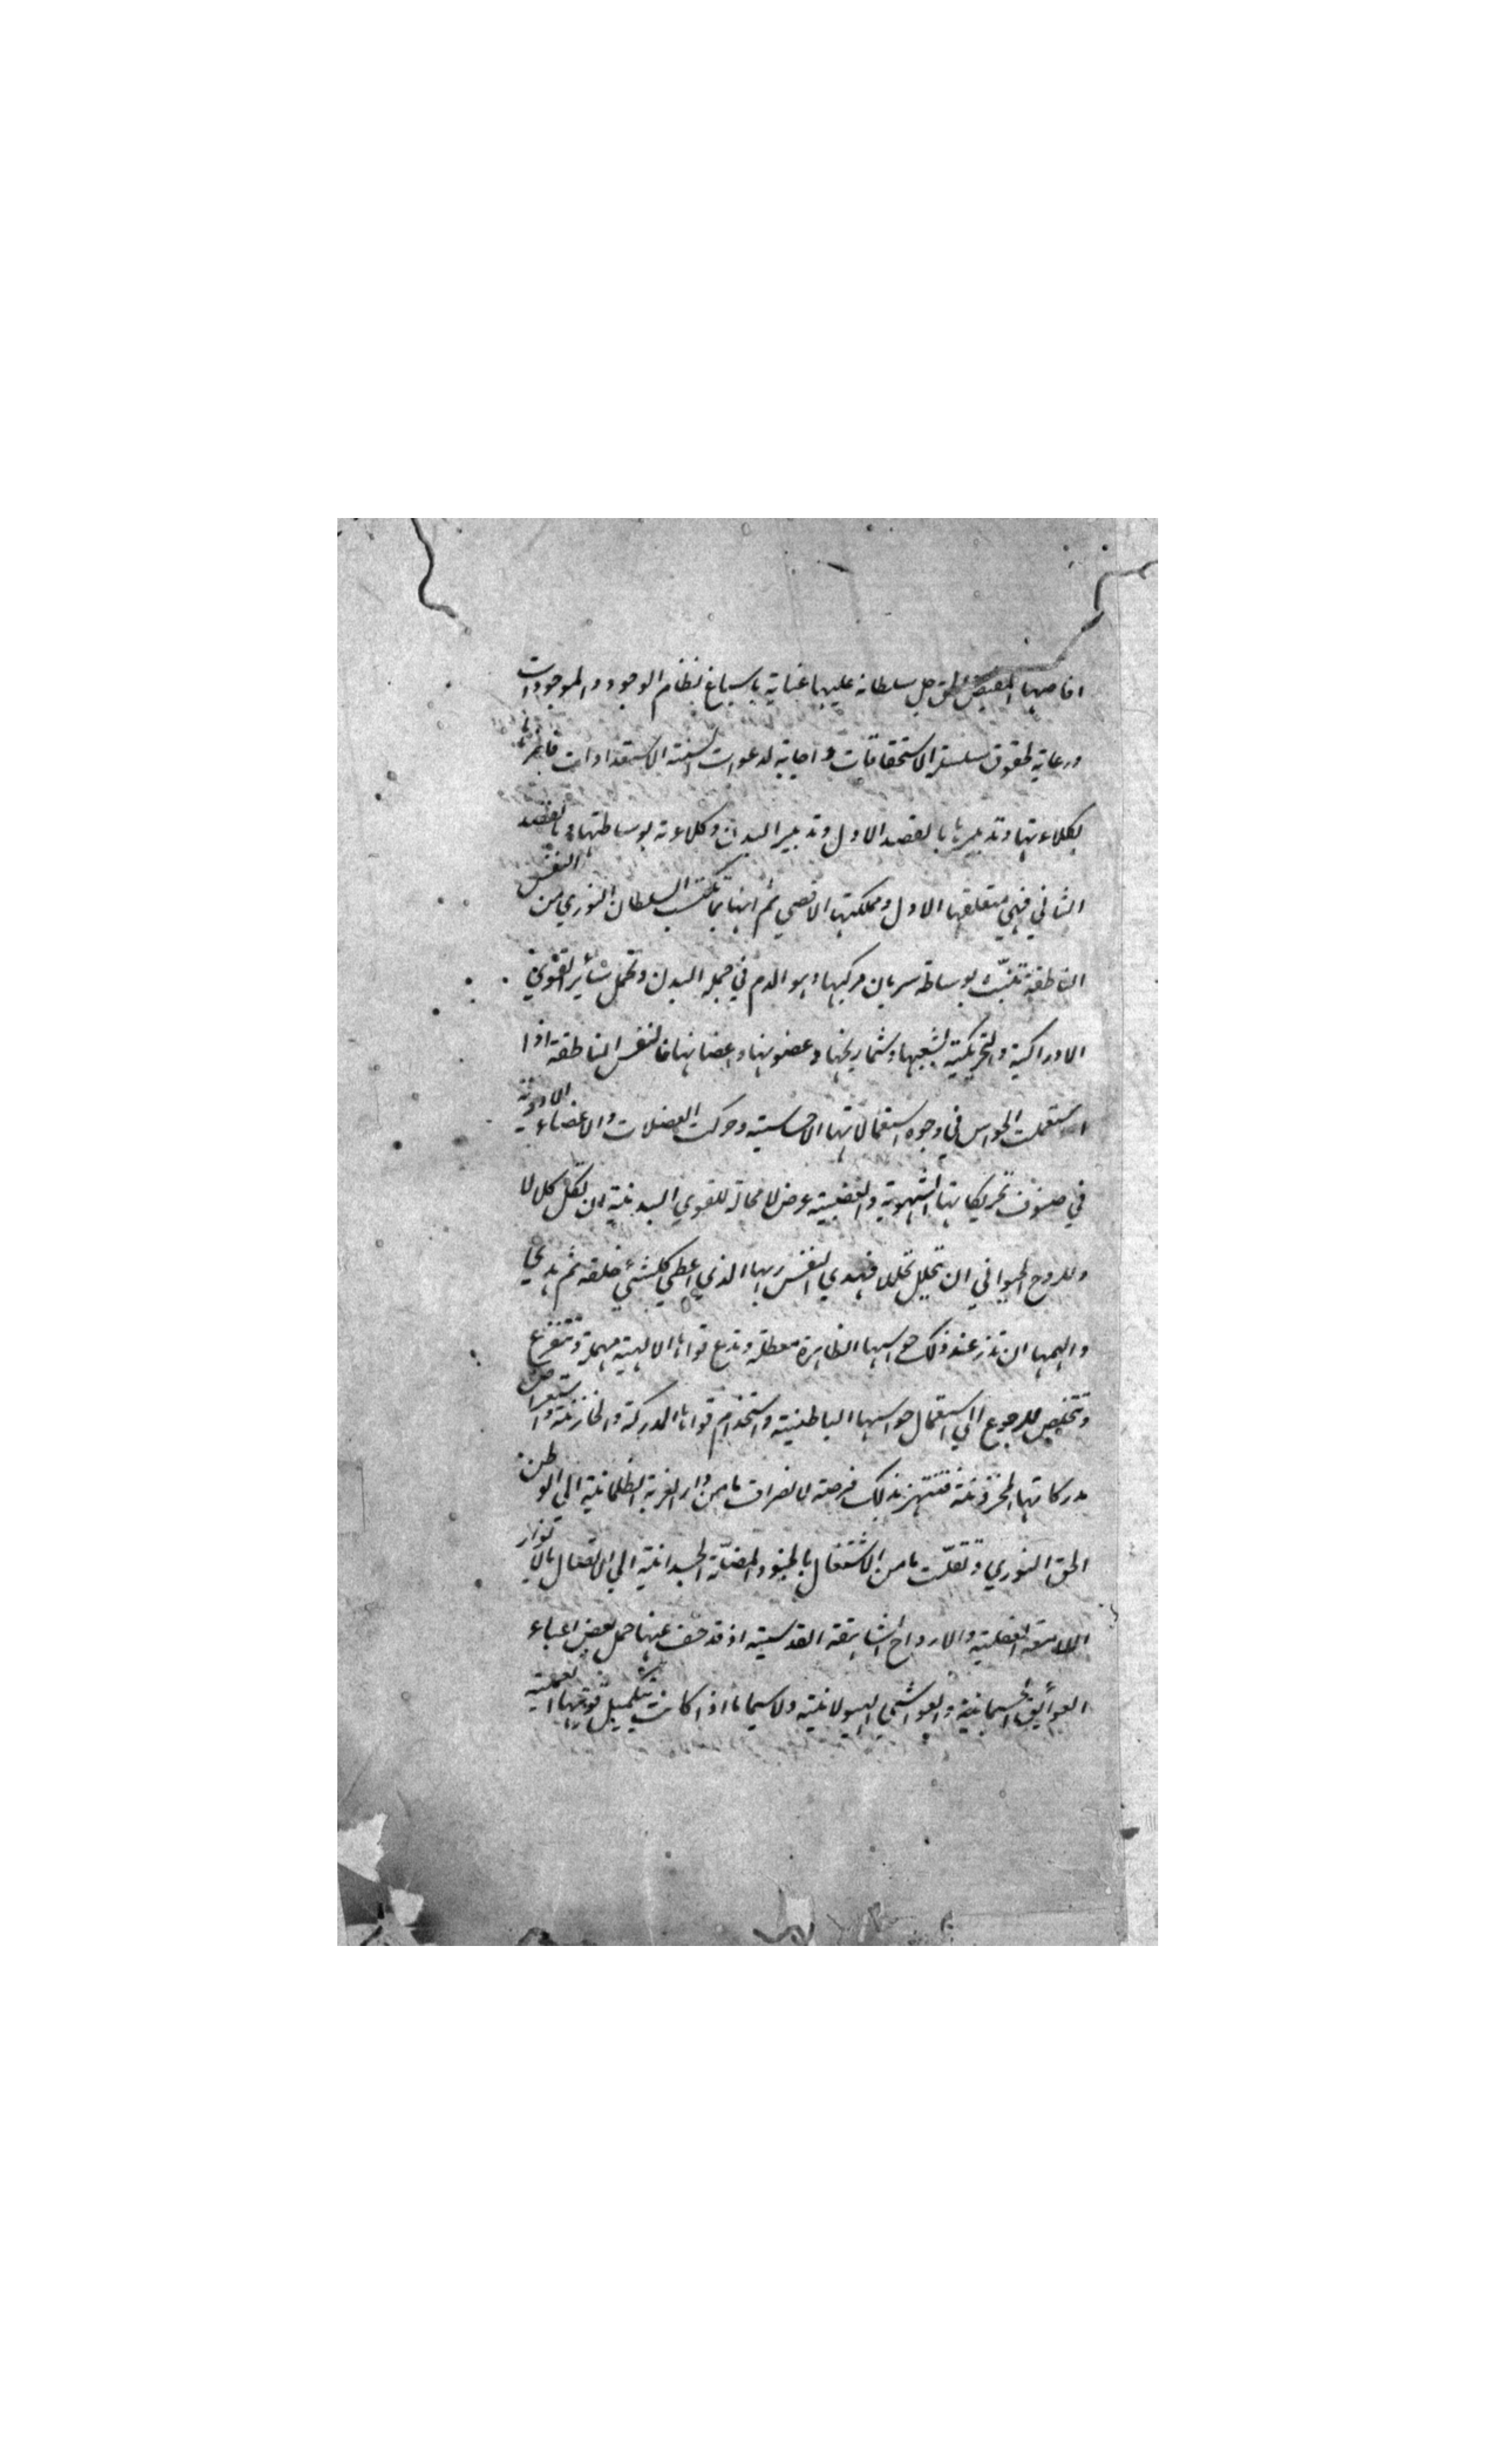 افاضها المفيض الحق جل سلطانه عليها عناية باسباغ نظام الوجود والموجودات
ورعاية لحقوق سلسلة الاستحقاقات واجابة لدعوات السنة الاستعدادات
بكلاءتها وتدبيرها بالقصد الاول وتدبير البدن وكلاءته بوساطتها وبالقصد
الثاني فهي متعلقها الاول ومملكتها الاقصي ثم انها بما تكتسب السلطان النوري من النفس
الناطقة تنبث بوساطة سريان مركبها وهو الدم في جملة البدن وتحمل سائر القوي
الادراكية والتحريكية بشعبها وشماريخها وغضونها واغصانها فالنفس الناطقة اذا
استعملت الحواس في وجوه استعمالاتها الاحساسية وحركت العضلات والاعضاء
في صنوف تحريكاتها الشهوية والغضبية عرض لا محالة للقوي البدنية ان تكل كلالا
وللروح الحيواني ان تتحلل تحللا فهدي النفس ربها الذي اعطي كلشئ خلقه ثم هدي
والهمها ان تذر عند ذلك حواسها الظاهرة معطلة وتدع قواها الالهية مهملة وتتفرغ
وتتخلص للرجوع الي استعمال حواسها الباطنية واستخدام قواها المدركة والخازنة واستعراض
مدركاتها المخزونة فتنتهز بذلك فرصة لانصرافها من دار الغربة الظلمانية الي الوطن
الحق النوري وتفلتها من الاشتغال بالجنود المضلة الجسدانية الي الاتصال بالانوار
اللامعة العقلية والارواح الشايقة القدسية اذ قد خف عنها حمل بعض اعباء
العوايق الجسمانية والغواشي الهيولانية ولا سيما اذا كانت بتكميل قوتها العملية